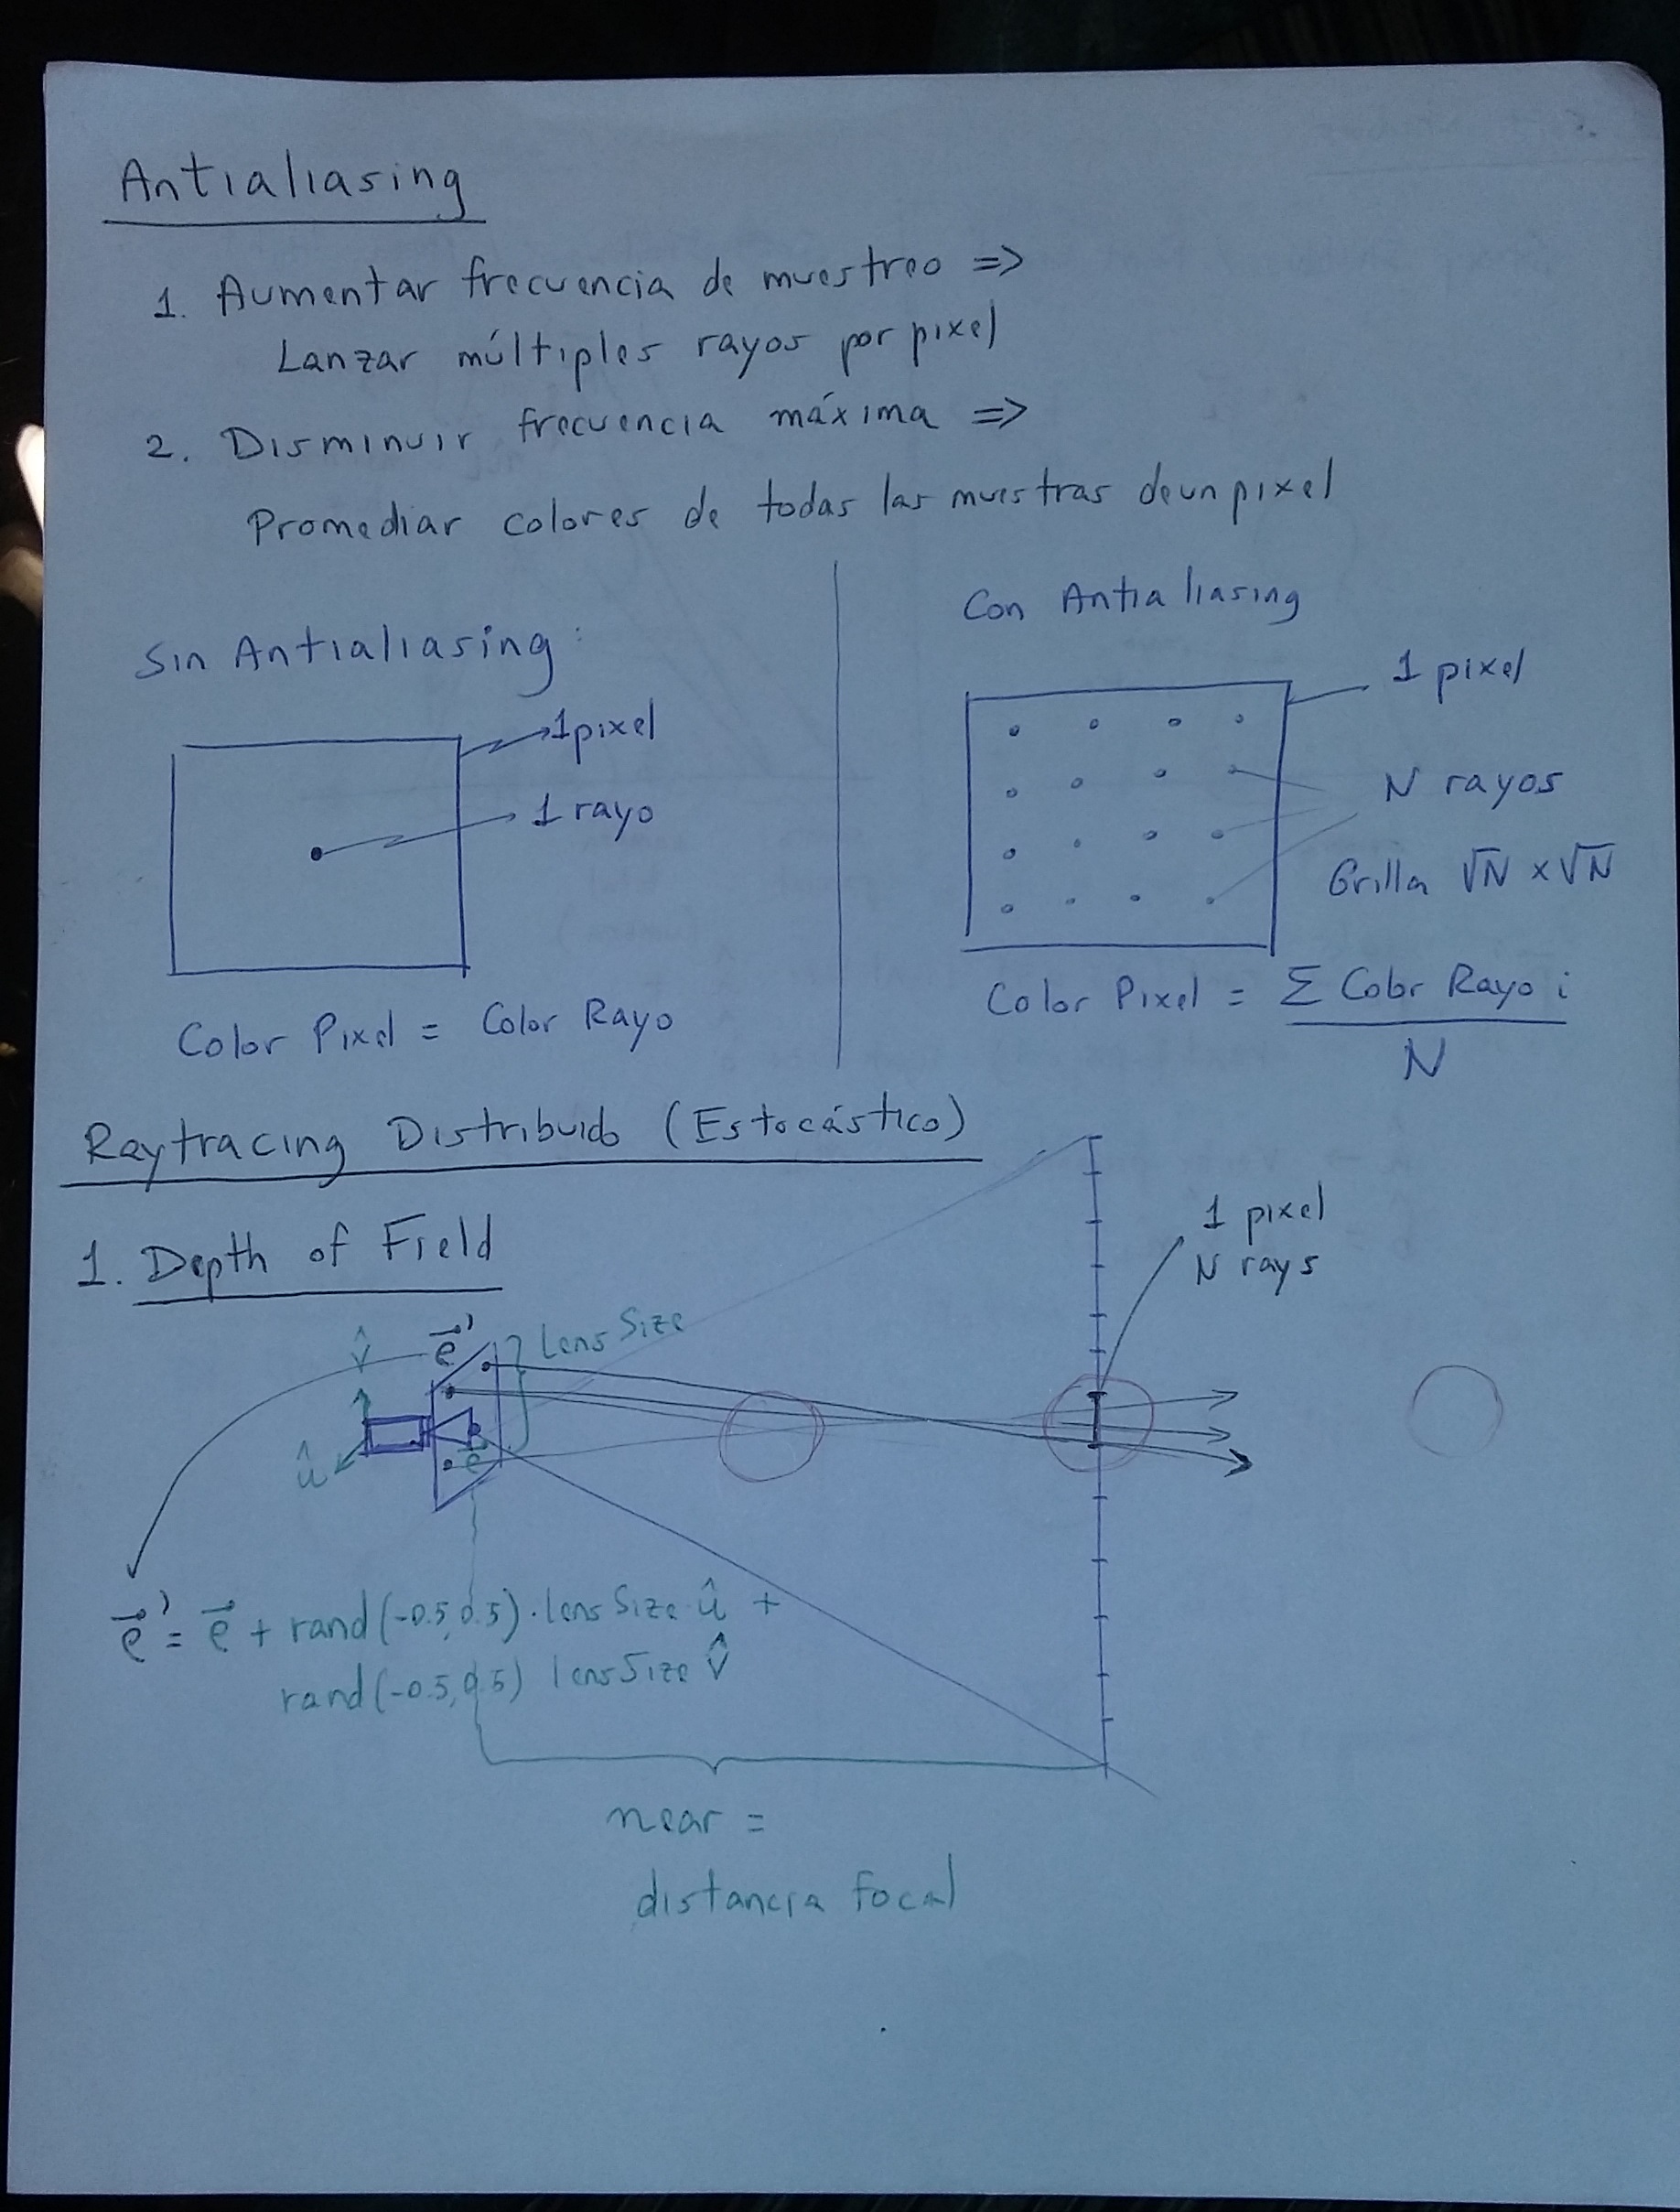 Antialiasing
1. Aumentar frecuencia de muestreo =>
Lanzar múltiples rayos por pixel
2. Disminuir frecuencia máxima =>
Promediar colores de todas las muestras de un pixel
Sin Antialiasing:
1 pixel
1 rayo
Color Pixel = Color Rayo
Con Antialiasing
1 pixel
N rayos
Grilla √N x √N
Color Pixel = Σ Color Rayo i
N
Raytracing Distribuido (Estocástico)
1. Depth of Field
1 pixel
N rays
v̂
e⃗'
Lens Size
û
e
e⃗' = e⃗ + rand(-0.5, 0.5) · lens Size û +
rand(-0.5, 0.5) lens Size v̂
near =
distancia focal